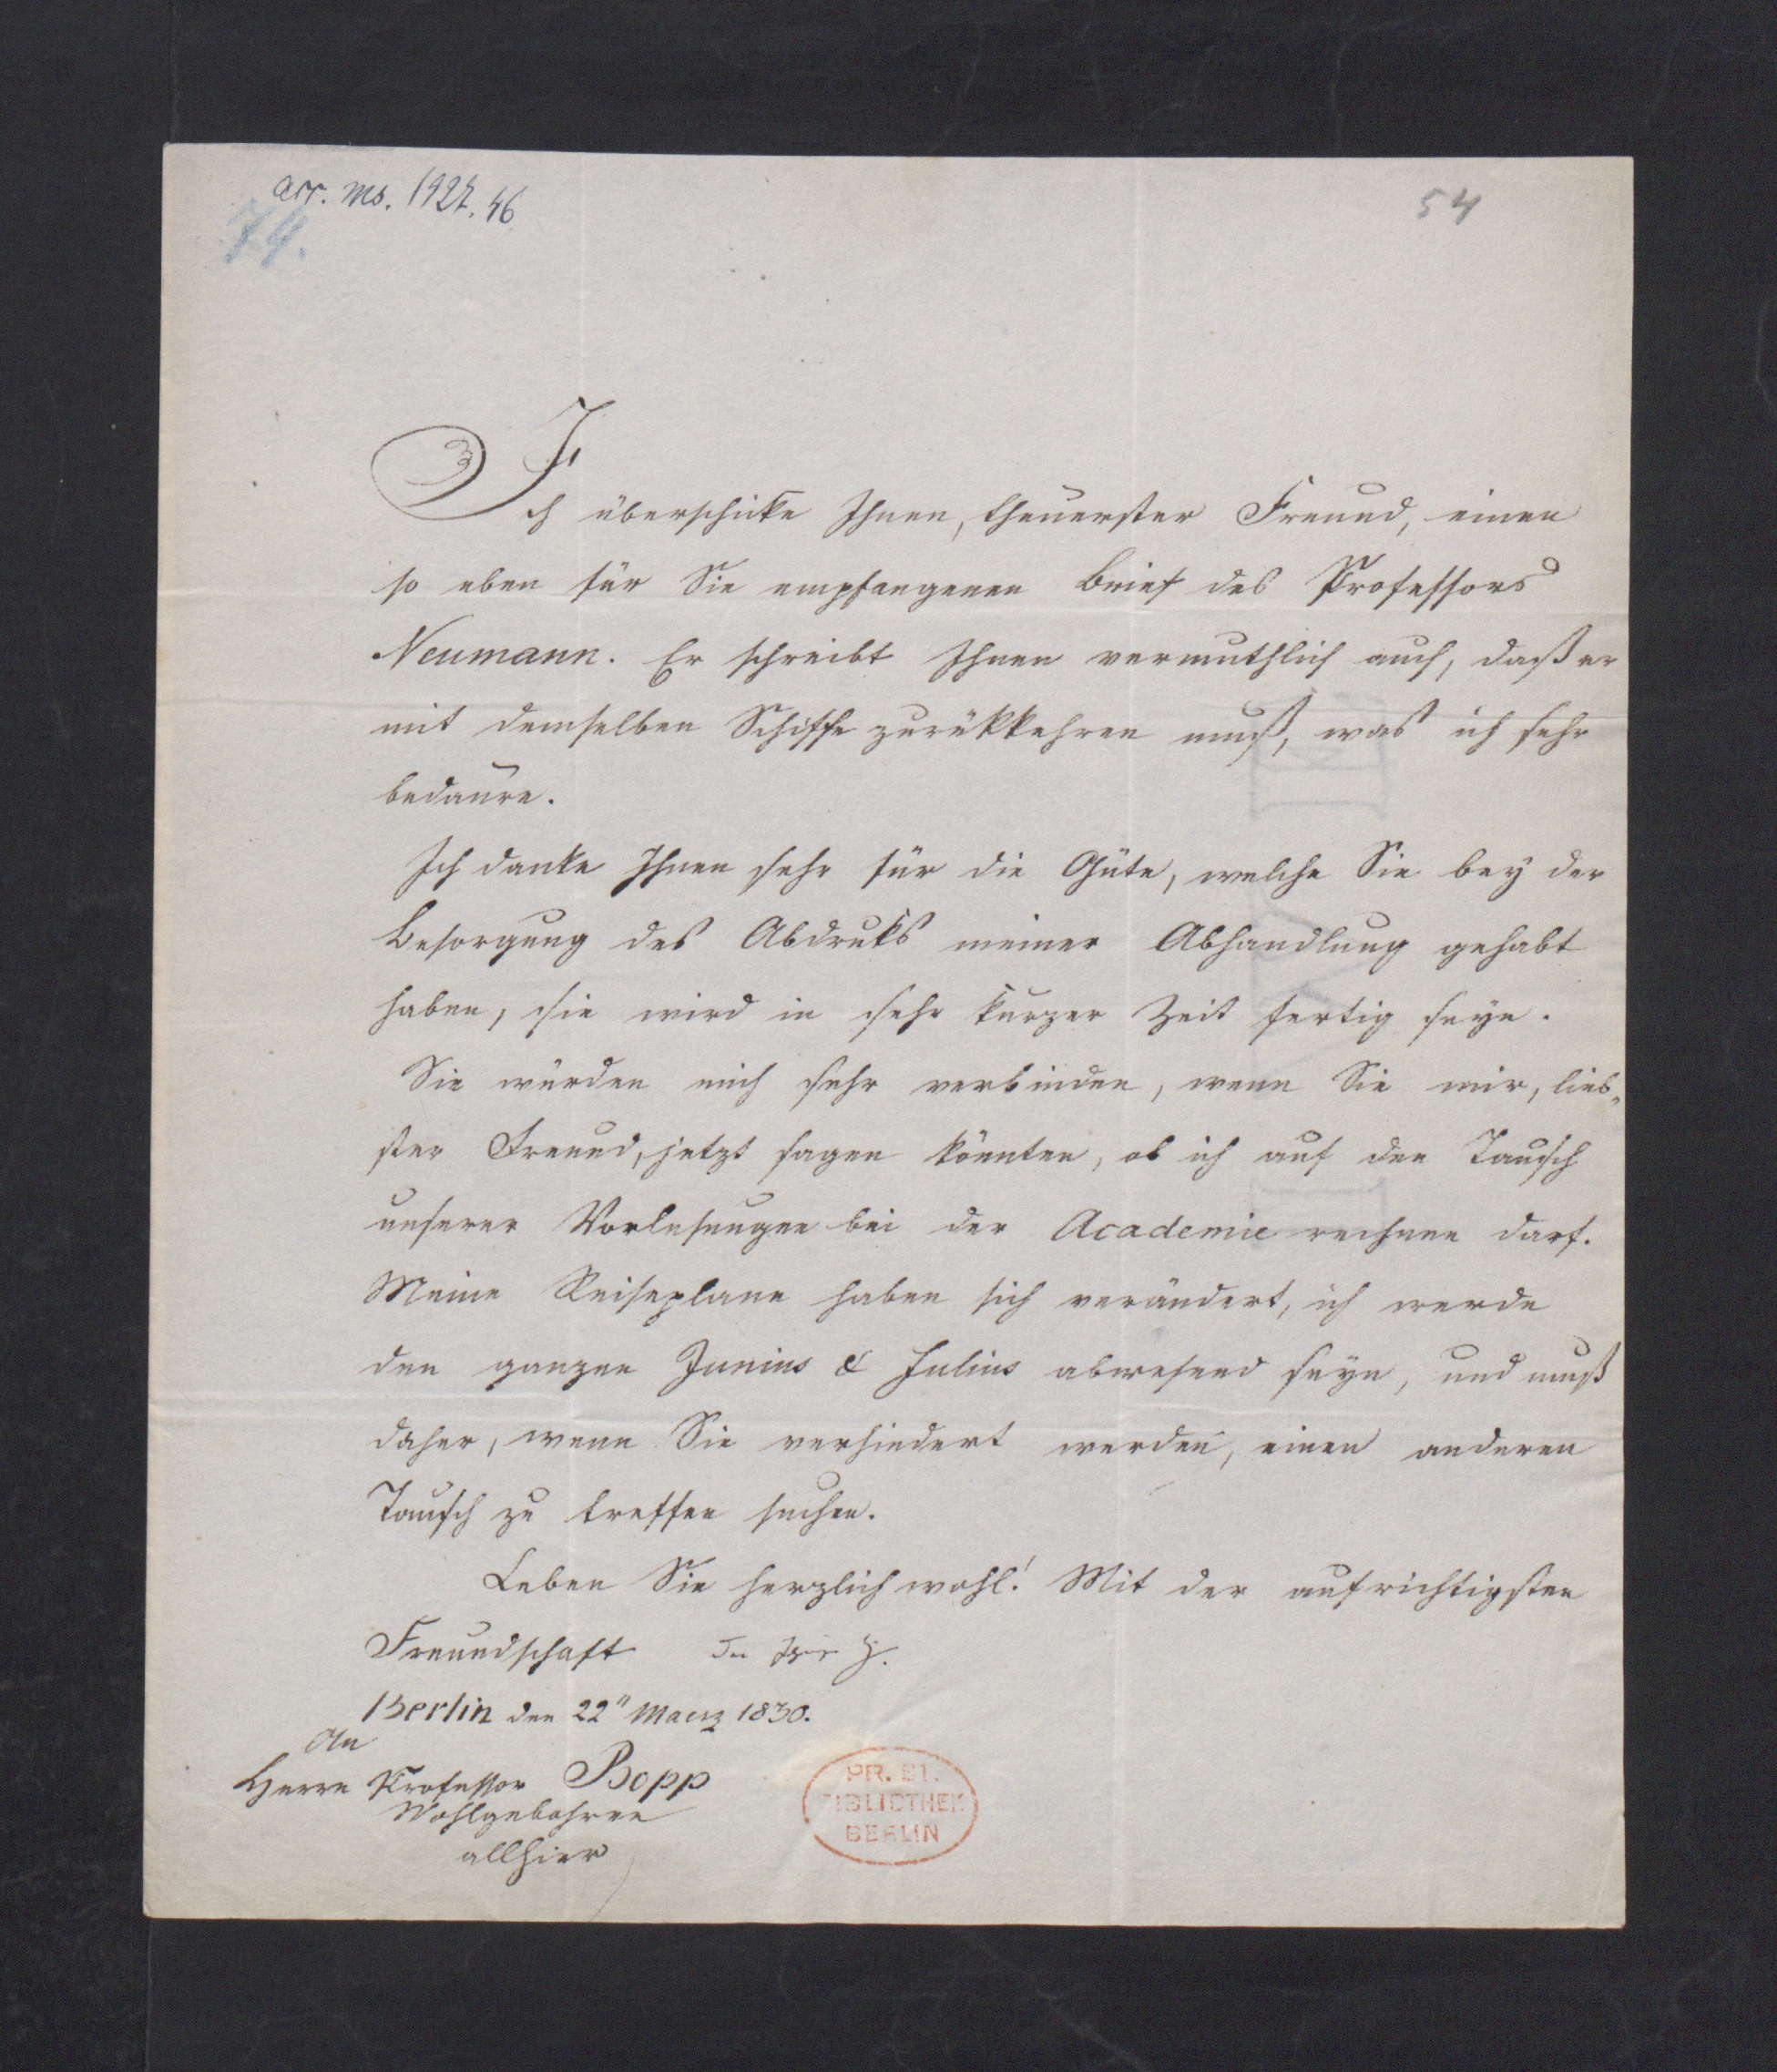 acc. ms. 1927. 46
74.
54
Ich überschicke Ihnen, theuerster Freund, einen
so eben für Sie empfangenen Brief des Professors
Neumann. Er schreibt Ihnen vermuthlich auch, daß er
mit demselben Schiffe zurükkehren muß, was ich sehr
bedaure.
Ich danke Ihnen sehr für die Güte, welche Sie bey der
Besorgung des Abdruks meiner Abhandlung gehabt
haben, sie wird in sehr kurzer Zeit fertig seyn.
Sie würden mich sehr verbinden, wenn Sie mir, lieb„
ster Freund, jetzt sagen könnten, ob ich auf den Tausch
unserer Vorlesungen bei der Academie rechnen darf.
Meine Reiseplane haben sich verändert, ich werde
den ganzen Junius & Julius abwesend seyn, und muß
daher, wenn Sie verhindert werden, einen anderen
Tausch zu treffen suchen.
Leben Sie herzlich wohl! Mit der aufrichtigsten
Freundschaft der Ihrige H.
Berlin den 22" Maerz 1830.
An
Herrn Professor Bopp
Wohlgebohren
allhier
PR. ST.
BIBLIOTHEK
BERLIN